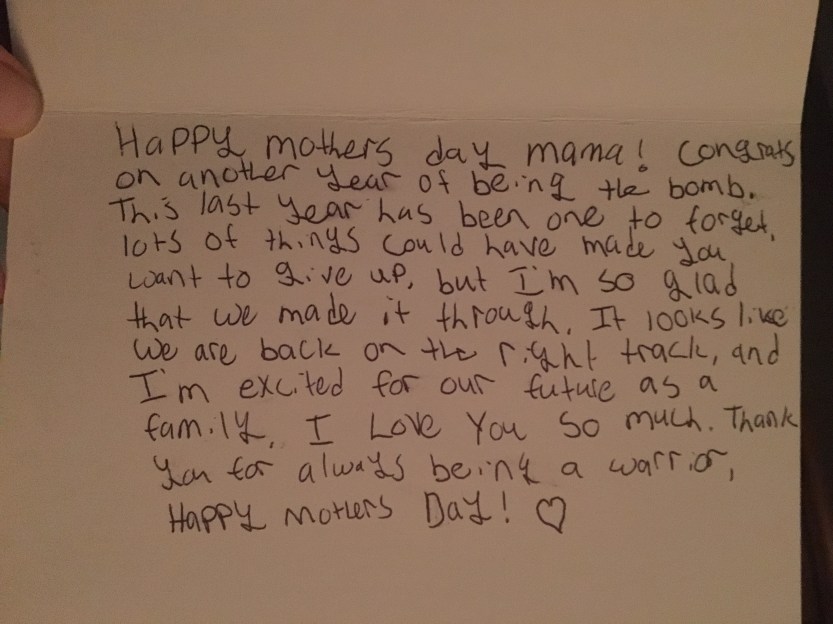 Happy mothers day mama! Congrats
on another year of being the bomb.
This last year has been one to forget,
lots of things could have made you
want to give up, but I'm so glad
that we made it through. It looks like
we are back on the right track, and
I'm excited for our future as a
family. I Love You so much. Thank
you for always being a warrior,
Happy Mothers Day! ♡